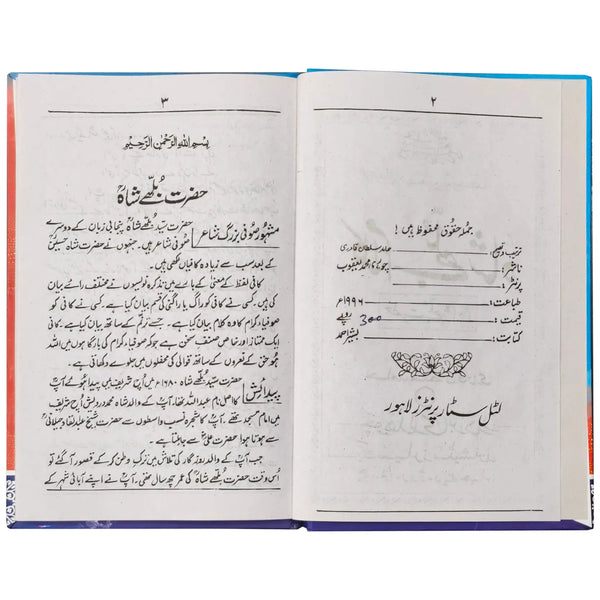 ۲
جملہ حقوق محفوظ ہیں!
ترتیب و تصحیح: سلطان قادری
ناشر: محمد یعقوب
پرنٹر:
طباعت: ۱۹۹۶ء
قیمت: 300 روپے
کتابت: بشیر احمد
لٹل سٹار پرنٹرز لاہور
۳
بسم اللہ الرحمٰن الرحیم
حضرت بُلھے شاہؒ
مشہور صوفی بزرگ شاعر
حضرت سیّد بُلھے شاہؒ پنجابی زبان کے دوسرے
صُوفی شاعر ہیں۔ جنہوں نے حضرت شاہ حسینؒ
کے بعد سب سے زیادہ کافیاں لکھی ہیں۔
کافی لفظ کے معنیٰ کے بارے میں تذکرہ نویسوں نے مختلف رائے بیان
کی ہیں۔ کسی نے کافی کو راگ یا راگنی کی قسم بیان کیا ہے۔ کسی نے
صوفیاء کرام کا وہ کلام بیان کیا ہے، جسے ترنّم کے ساتھ بیان کیا ہے۔ کافی کو
ایک ممتاز اور خاص صنف سخن ہے جو کہ صوفیاء کرام کی بارگاہوں میں اللہ
ہو حق کے نعروں کے ساتھ قوالی کی محفلوں میں جلوے دکھاتی ہے۔
پیدائش
حضرت سیّد بُلھے شاہؒ ۱۶۸۰ء میں اُچ شریف میں پیدا ہوئے آپؒ
کا اصلی نام عبداللہ تھا۔ آپ کے والد شاہ محمد درویش اُچ شریف
میں امام مسجد تھے۔ آپؒ کا شجرہ نسب واسطوں سے حضرت شیخ عبدالقادر جیلانیؒ
سے ہوتا ہوا حضرت علیؓ سے جا ملتا ہے۔
جب آپؒ کے والد روزگار کی تلاش میں ترکِ وطن کر کے قصور آ گئے تو
اُس وقت حضرت بُلھے شاہؒ کی عمر چھ سال تھی۔ آپؒ نے اپنے آبائی شہر کے